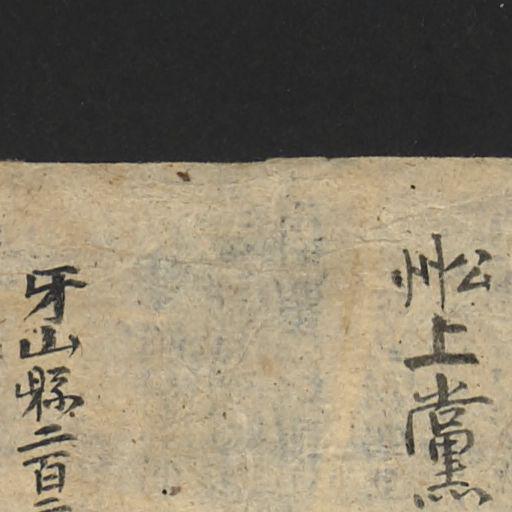 上黨
牙山縣二百